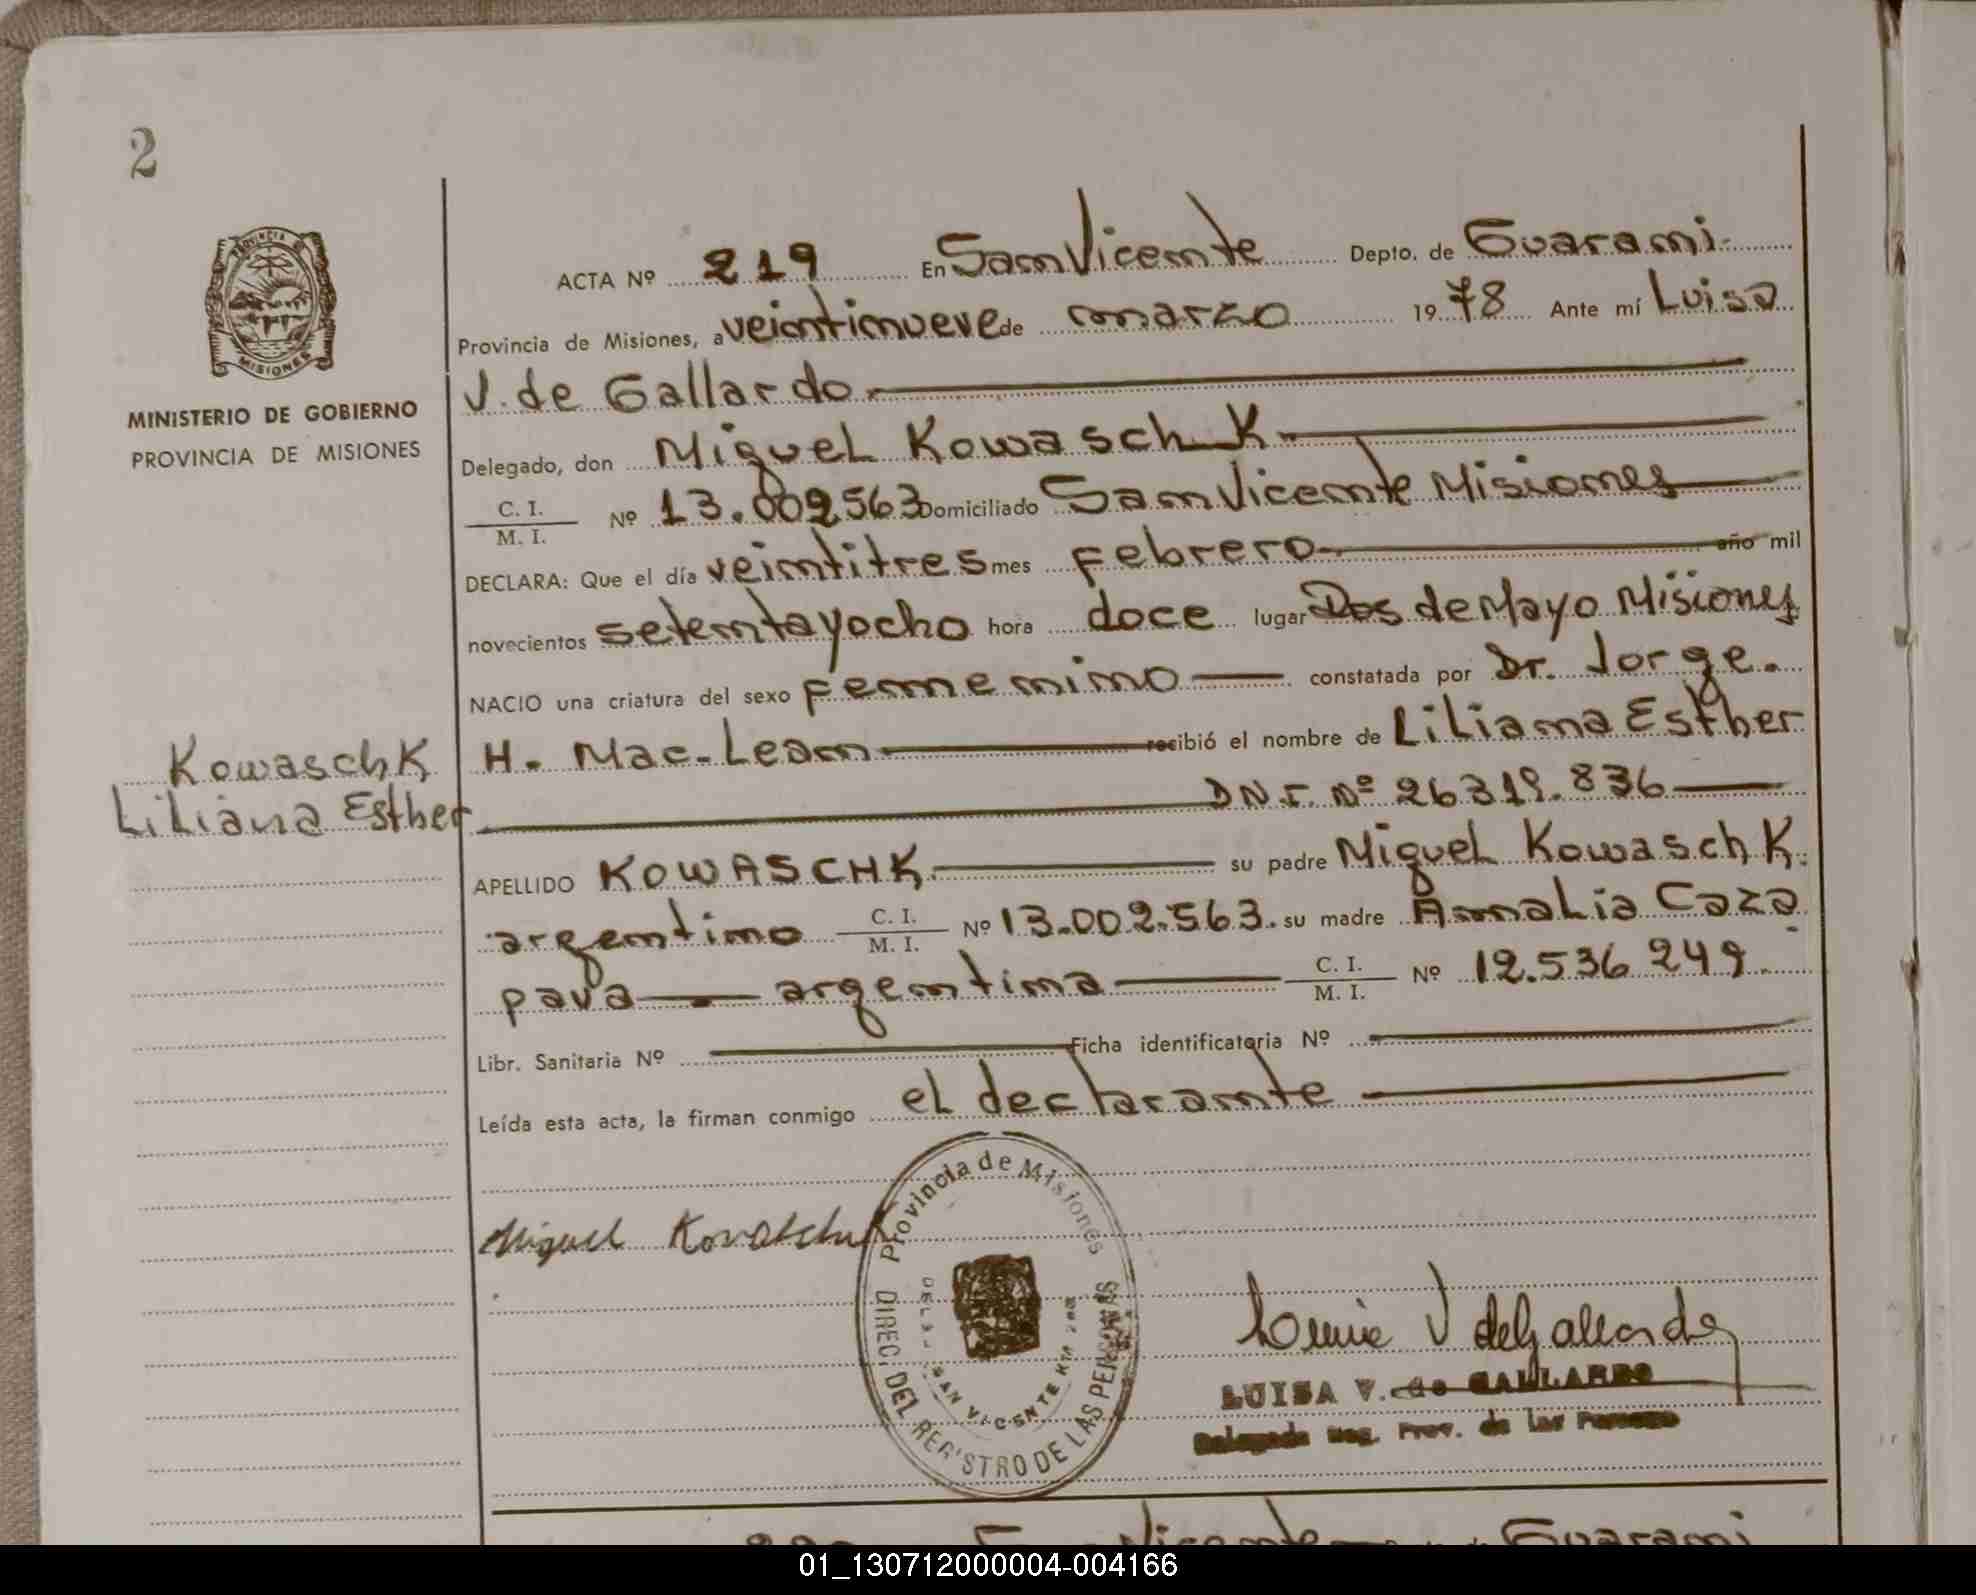 2
PROVINCIA DE
MISIONES
MINISTERIO DE GOBIERNO
PROVINCIA DE MISIONES
ACTA Nº 219 En San Vicente Depto. de Guarani
Provincia de Misiones, a veintinueve de marzo 1978 Ante mí Luisa
V. de Gallardo
Delegado, don Miguel Kowaschk
C. I. / M. I. Nº 13.002563 Domiciliado San Vicente Misiones
DECLARA: Que el día veintitres mes febrero año mil
novecientos setentayocho hora doce lugar Dos de Mayo Misiones
NACIO una criatura del sexo femenino constatada por Dr. Jorge.
H. Mac-Lean recibió el nombre de Liliana Esther
DNI. Nº 26319.836
Kowaschk
Liliana Esther
APELLIDO KOWASCHK su padre Miguel Kowaschk
argentino C. I. / M. I. Nº 13.002.563. su madre Analia Caza
pava argentina C. I. / M. I. Nº 12.536 249
Libr. Sanitaria Nº Ficha identificatoria Nº
Leída esta acta, la firman conmigo el declarante
Miguel Kowaschk
Provincia de Misiones
DIREC. DEL REGISTRO DE LAS PERSONAS
SAN VICENTE
Luisa V de Gallardo
LUISA V. de GALLARDO
Delegada Reg. Prov. de las Personas
San Vicente Guarani
01_130712000004-004166